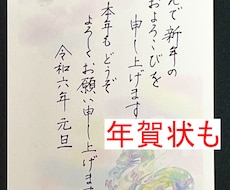 んで新年の
およろこびを
申し上げます
本年もどうぞ
よろしくお願い申し上げま
令和六年元旦
年賀状も